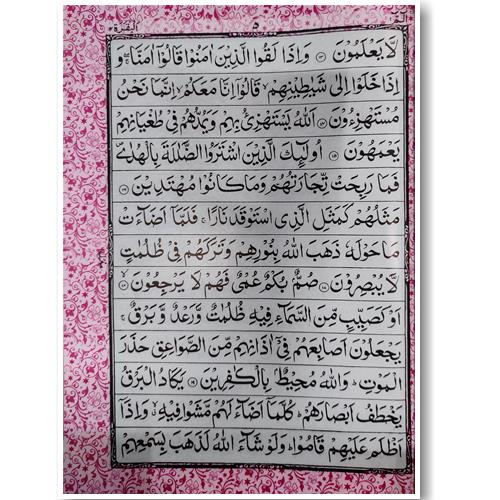 البقرة ٢ ٥ الٓمّٓ ١
لَّا يَعْلَمُوْنَ ⁝ وَاِذَا لَقُوا الَّذِيْنَ اٰمَنُوْا قَالُوْٓا اٰمَنَّا ۚ وَ
اِذَا خَلَوْا اِلٰى شَيٰطِيْنِهِمْ ۙ قَالُوْٓا اِنَّا مَعَكُمْ ۙ اِنَّمَا نَحْنُ
مُسْتَهْزِءُوْنَ ⁝ اَللّٰهُ يَسْتَهْزِئُ بِهِمْ وَيَمُدُّهُمْ فِيْ طُغْيَانِهِمْ
يَعْمَهُوْنَ ⁝ اُولٰٓئِكَ الَّذِيْنَ اشْتَرَوُا الضَّلٰلَةَ بِالْهُدٰى ۪
فَمَا رَبِحَتْ تِّجَارَتُهُمْ وَمَا كَانُوْا مُهْتَدِيْنَ ⁝
مَثَلُهُمْ كَمَثَلِ الَّذِى اسْتَوْقَدَ نَارًا ۚ فَلَمَّآ اَضَآءَتْ
مَا حَوْلَهٗ ذَهَبَ اللّٰهُ بِنُوْرِهِمْ وَتَرَكَهُمْ فِيْ ظُلُمٰتٍ
لَّا يُبْصِرُوْنَ ⁝ صُمٌّۢ بُكْمٌ عُمْيٌ فَهُمْ لَا يَرْجِعُوْنَ ⁝
اَوْ كَصَيِّبٍ مِّنَ السَّمَآءِ فِيْهِ ظُلُمٰتٌ وَّرَعْدٌ وَّبَرْقٌ ۚ
يَجْعَلُوْنَ اَصَابِعَهُمْ فِيْٓ اٰذَانِهِمْ مِّنَ الصَّوَاعِقِ حَذَرَ
الْمَوْتِ ۭ وَاللّٰهُ مُحِيْطٌۢ بِالْكٰفِرِيْنَ ⁝ يَكَادُ الْبَرْقُ
يَخْطَفُ اَبْصَارَهُمْ ۭ كُلَّمَآ اَضَآءَ لَهُمْ مَّشَوْا فِيْهِ ۙ وَاِذَآ
اَظْلَمَ عَلَيْهِمْ قَامُوْا ۭ وَلَوْ شَآءَ اللّٰهُ لَذَهَبَ بِسَمْعِهِمْ